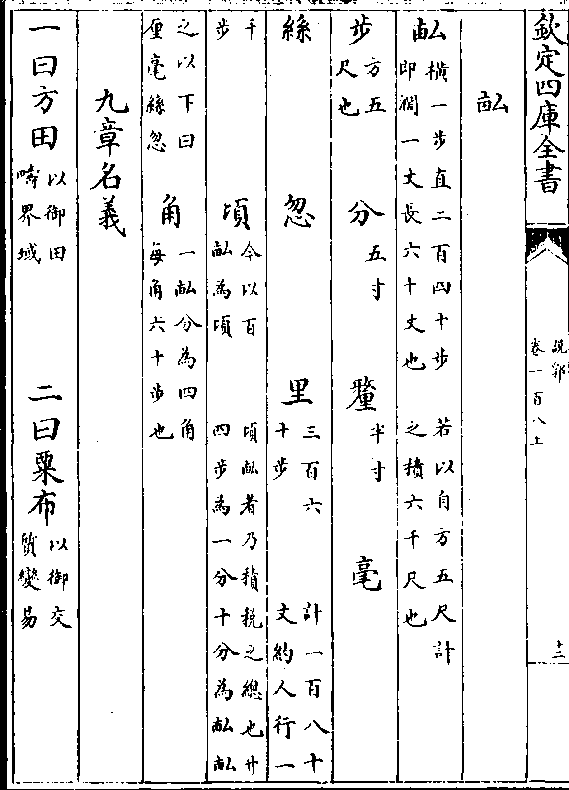 欽定四庫全書
說郛
卷一百八上
十二
畝
畝橫一步直二百四十步即濶一丈長六十丈也若以自方五尺計之積六千尺也
步方五尺也 分五寸 釐半寸 毫
絲 忽 里三百六十步計一百八十丈約人行一
千步 頃今以百畝為頃頃畝者乃積稅之總也廿四步為一分十分為畝畝
之以下曰厘毫絲忽 角一畝分為四角每角六十步也
九章名義
一曰方田以御田疇界域 二曰粟布以御交質變易